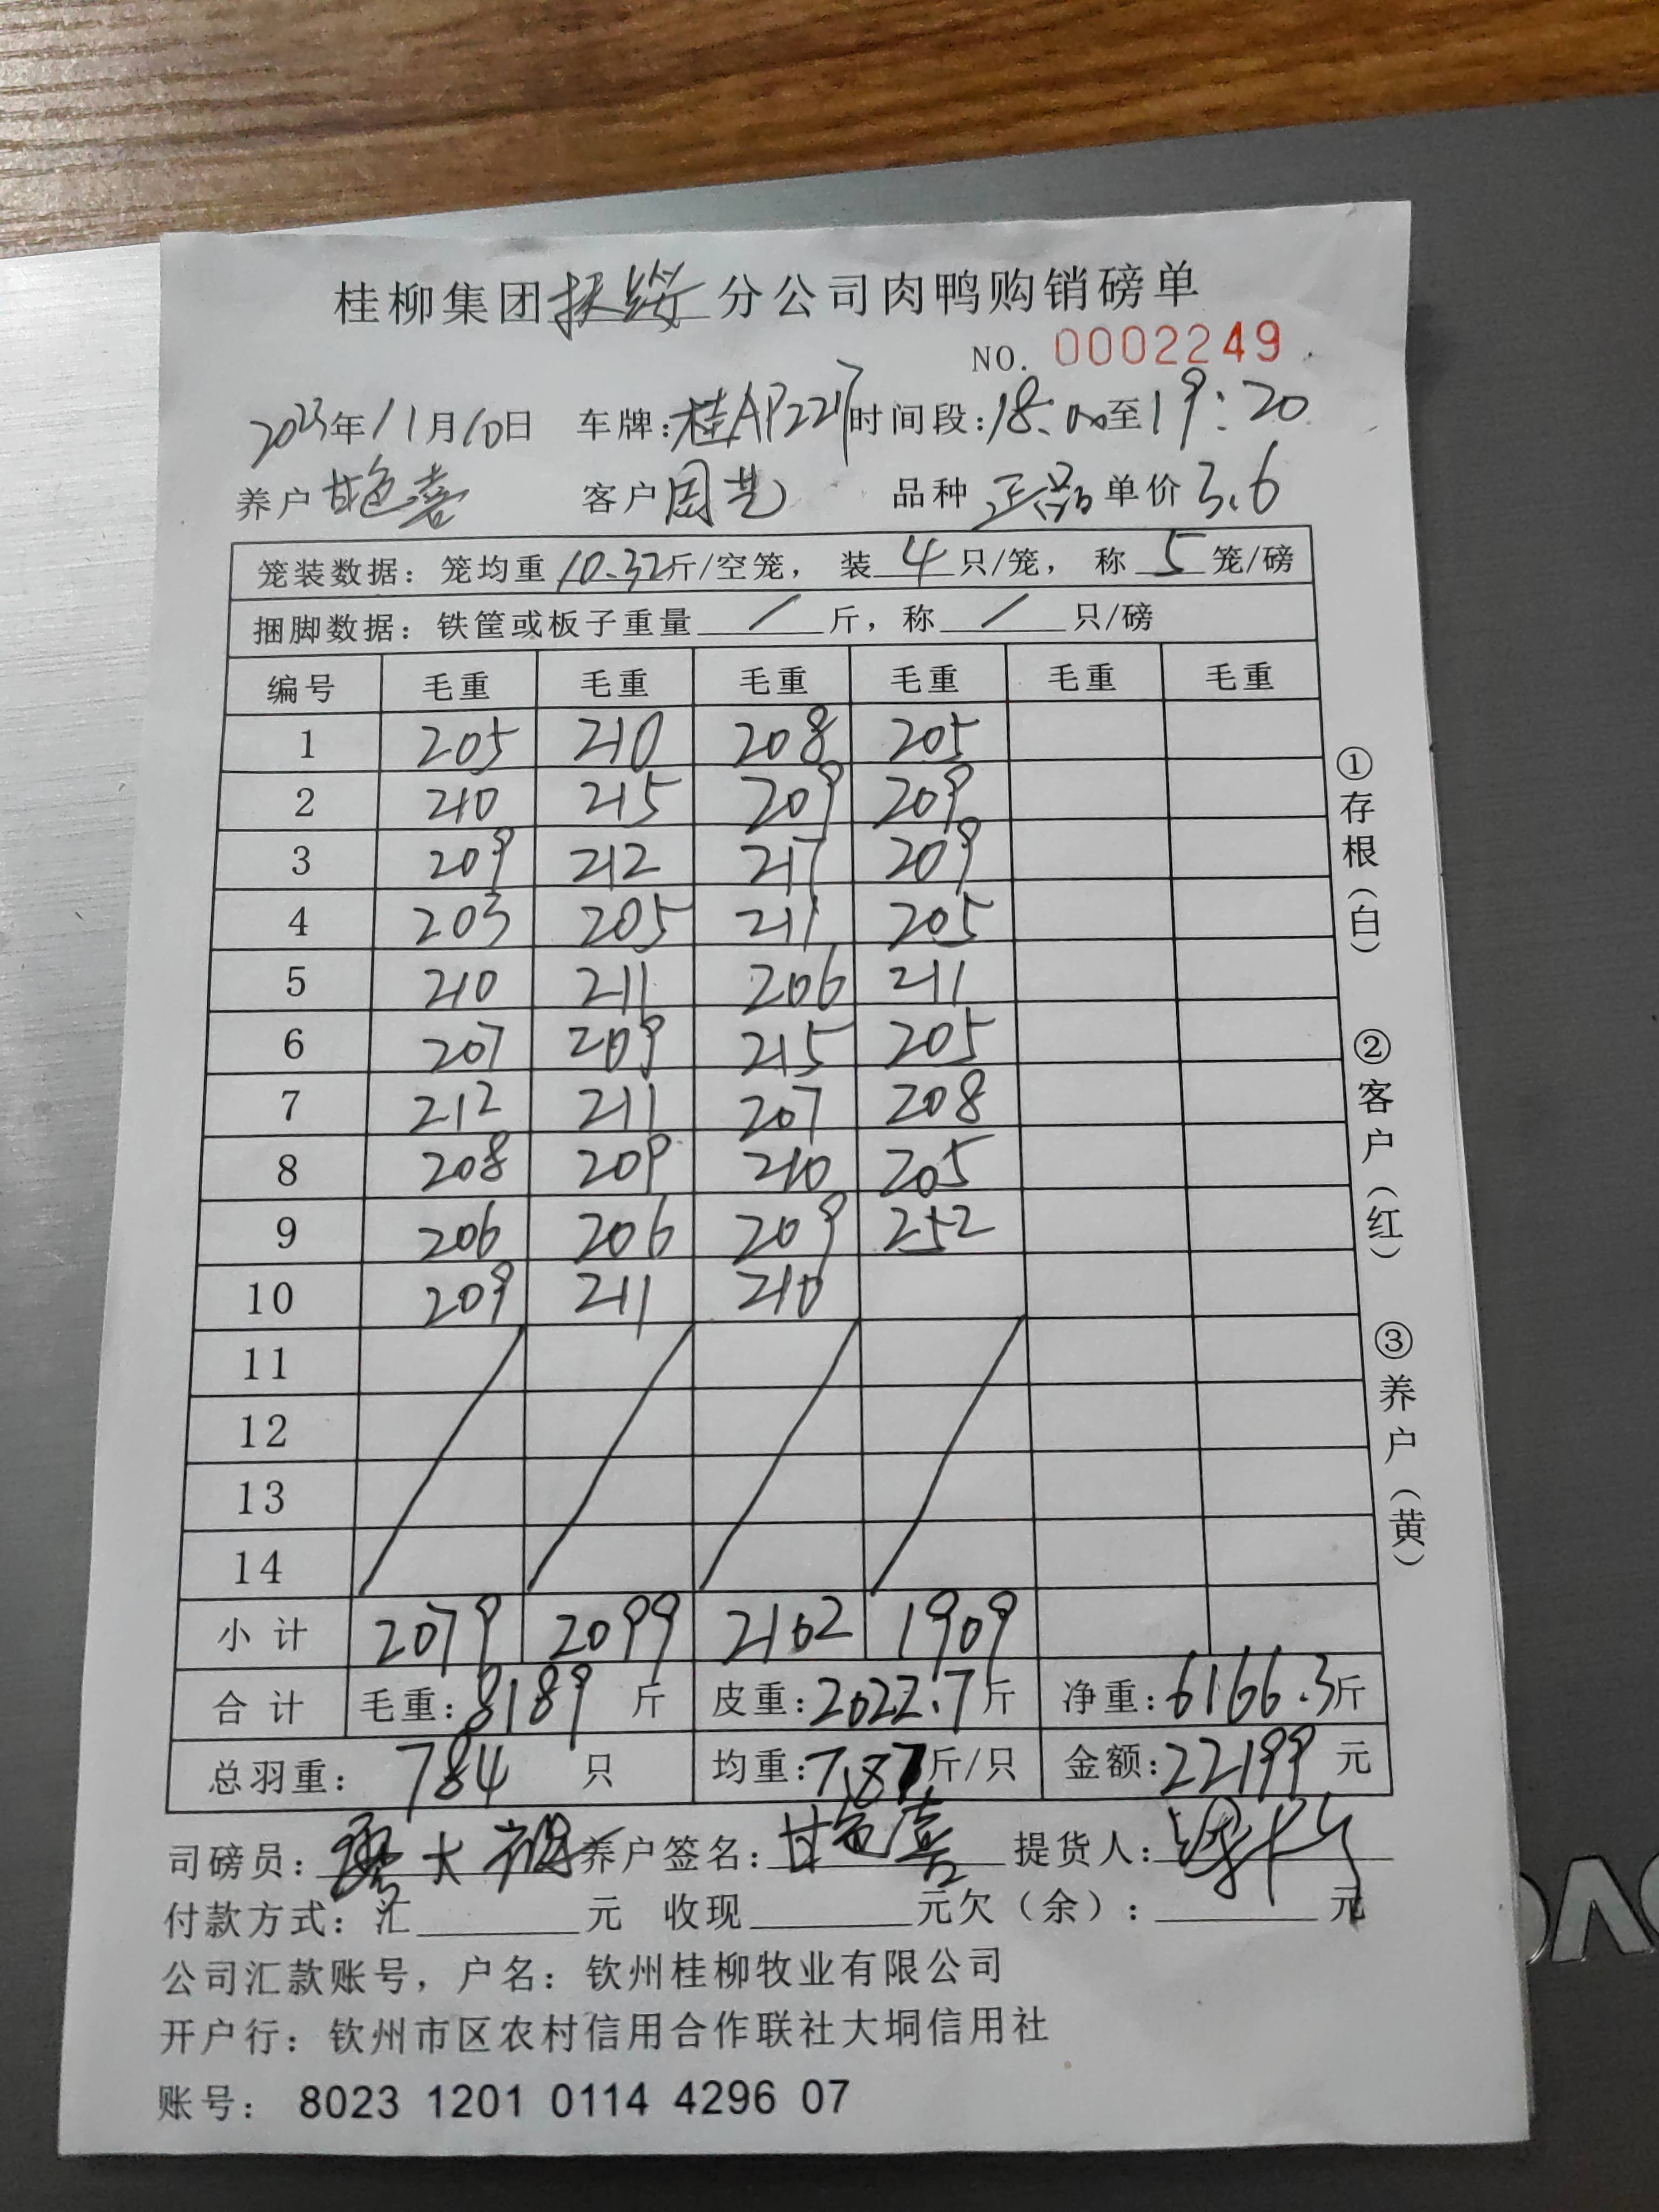 桂柳集团扶绥分公司肉鸭购销磅单
NO. 0002249
2023年11月10日 车牌:桂AP2217 时间段:18:00至19:20
养户 甘色喜 客户 周艺 品种 正品 单价 3.6
笼装数据: 笼均重 10.32斤/空笼, 装 4 只/笼, 称 5 笼/磅
捆脚数据: 铁筐或板子重量 / 斤, 称 / 只/磅
编号 毛重 毛重 毛重 毛重 毛重 毛重
1 205 210 208 205
2 210 215 209 209
3 209 212 217 209
4 203 205 211 205
5 210 211 206 211
6 207 209 215 205
7 212 211 207 208
8 208 209 210 205
9 206 206 209 252
10 209 211 210
11
12
13
14
小计 2079 2099 2102 1909
合计 毛重:8189 斤 皮重:2022.7斤 净重:6166.3斤
总羽重: 784 只 均重:7.87斤/只 金额:22199 元
司磅员: 养户签名:甘色喜 提货人:
付款方式: 汇 元 收现 元欠(余): 元
公司汇款账号, 户名: 钦州桂柳牧业有限公司
开户行: 钦州市区农村信用合作联社大垌信用社
账号: 8023 1201 0114 4296 07
①存根(白) ②客户(红) ③养户(黄)